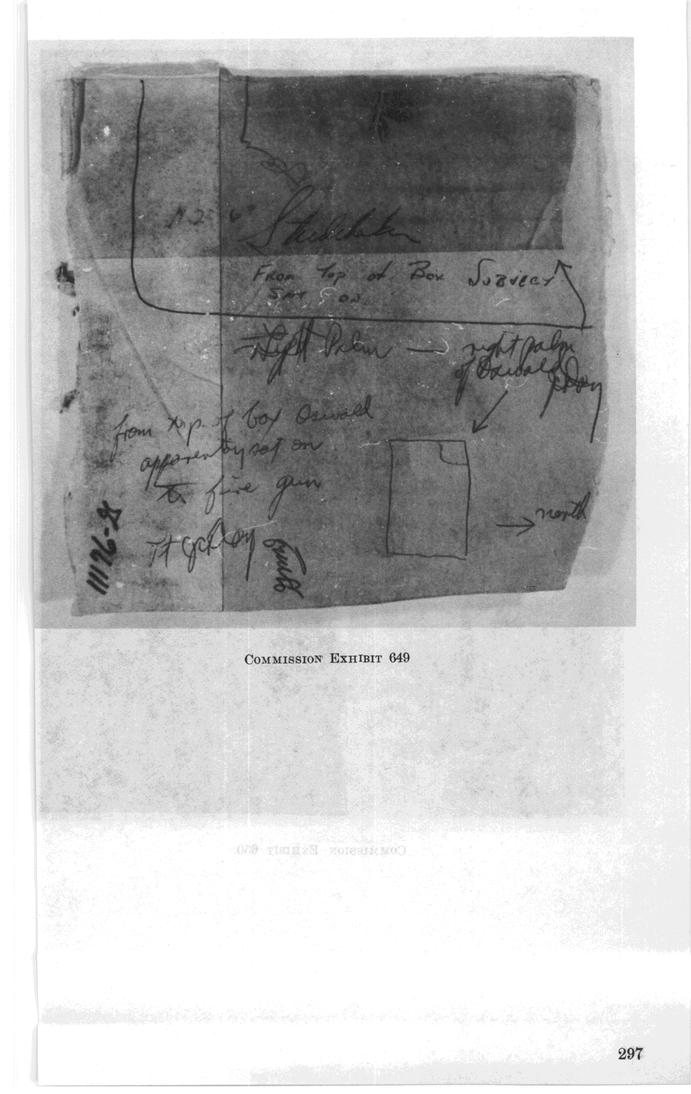 Studebaker
From Top of Box Subject
Sat on
Right Palm — right palm
of Oswald JCDay
from top of box Oswald
apparently sat on
to fire gun
Lt JCDay
north
COMMISSION EXHIBIT 649
COMMISSION EXHIBIT 650
297